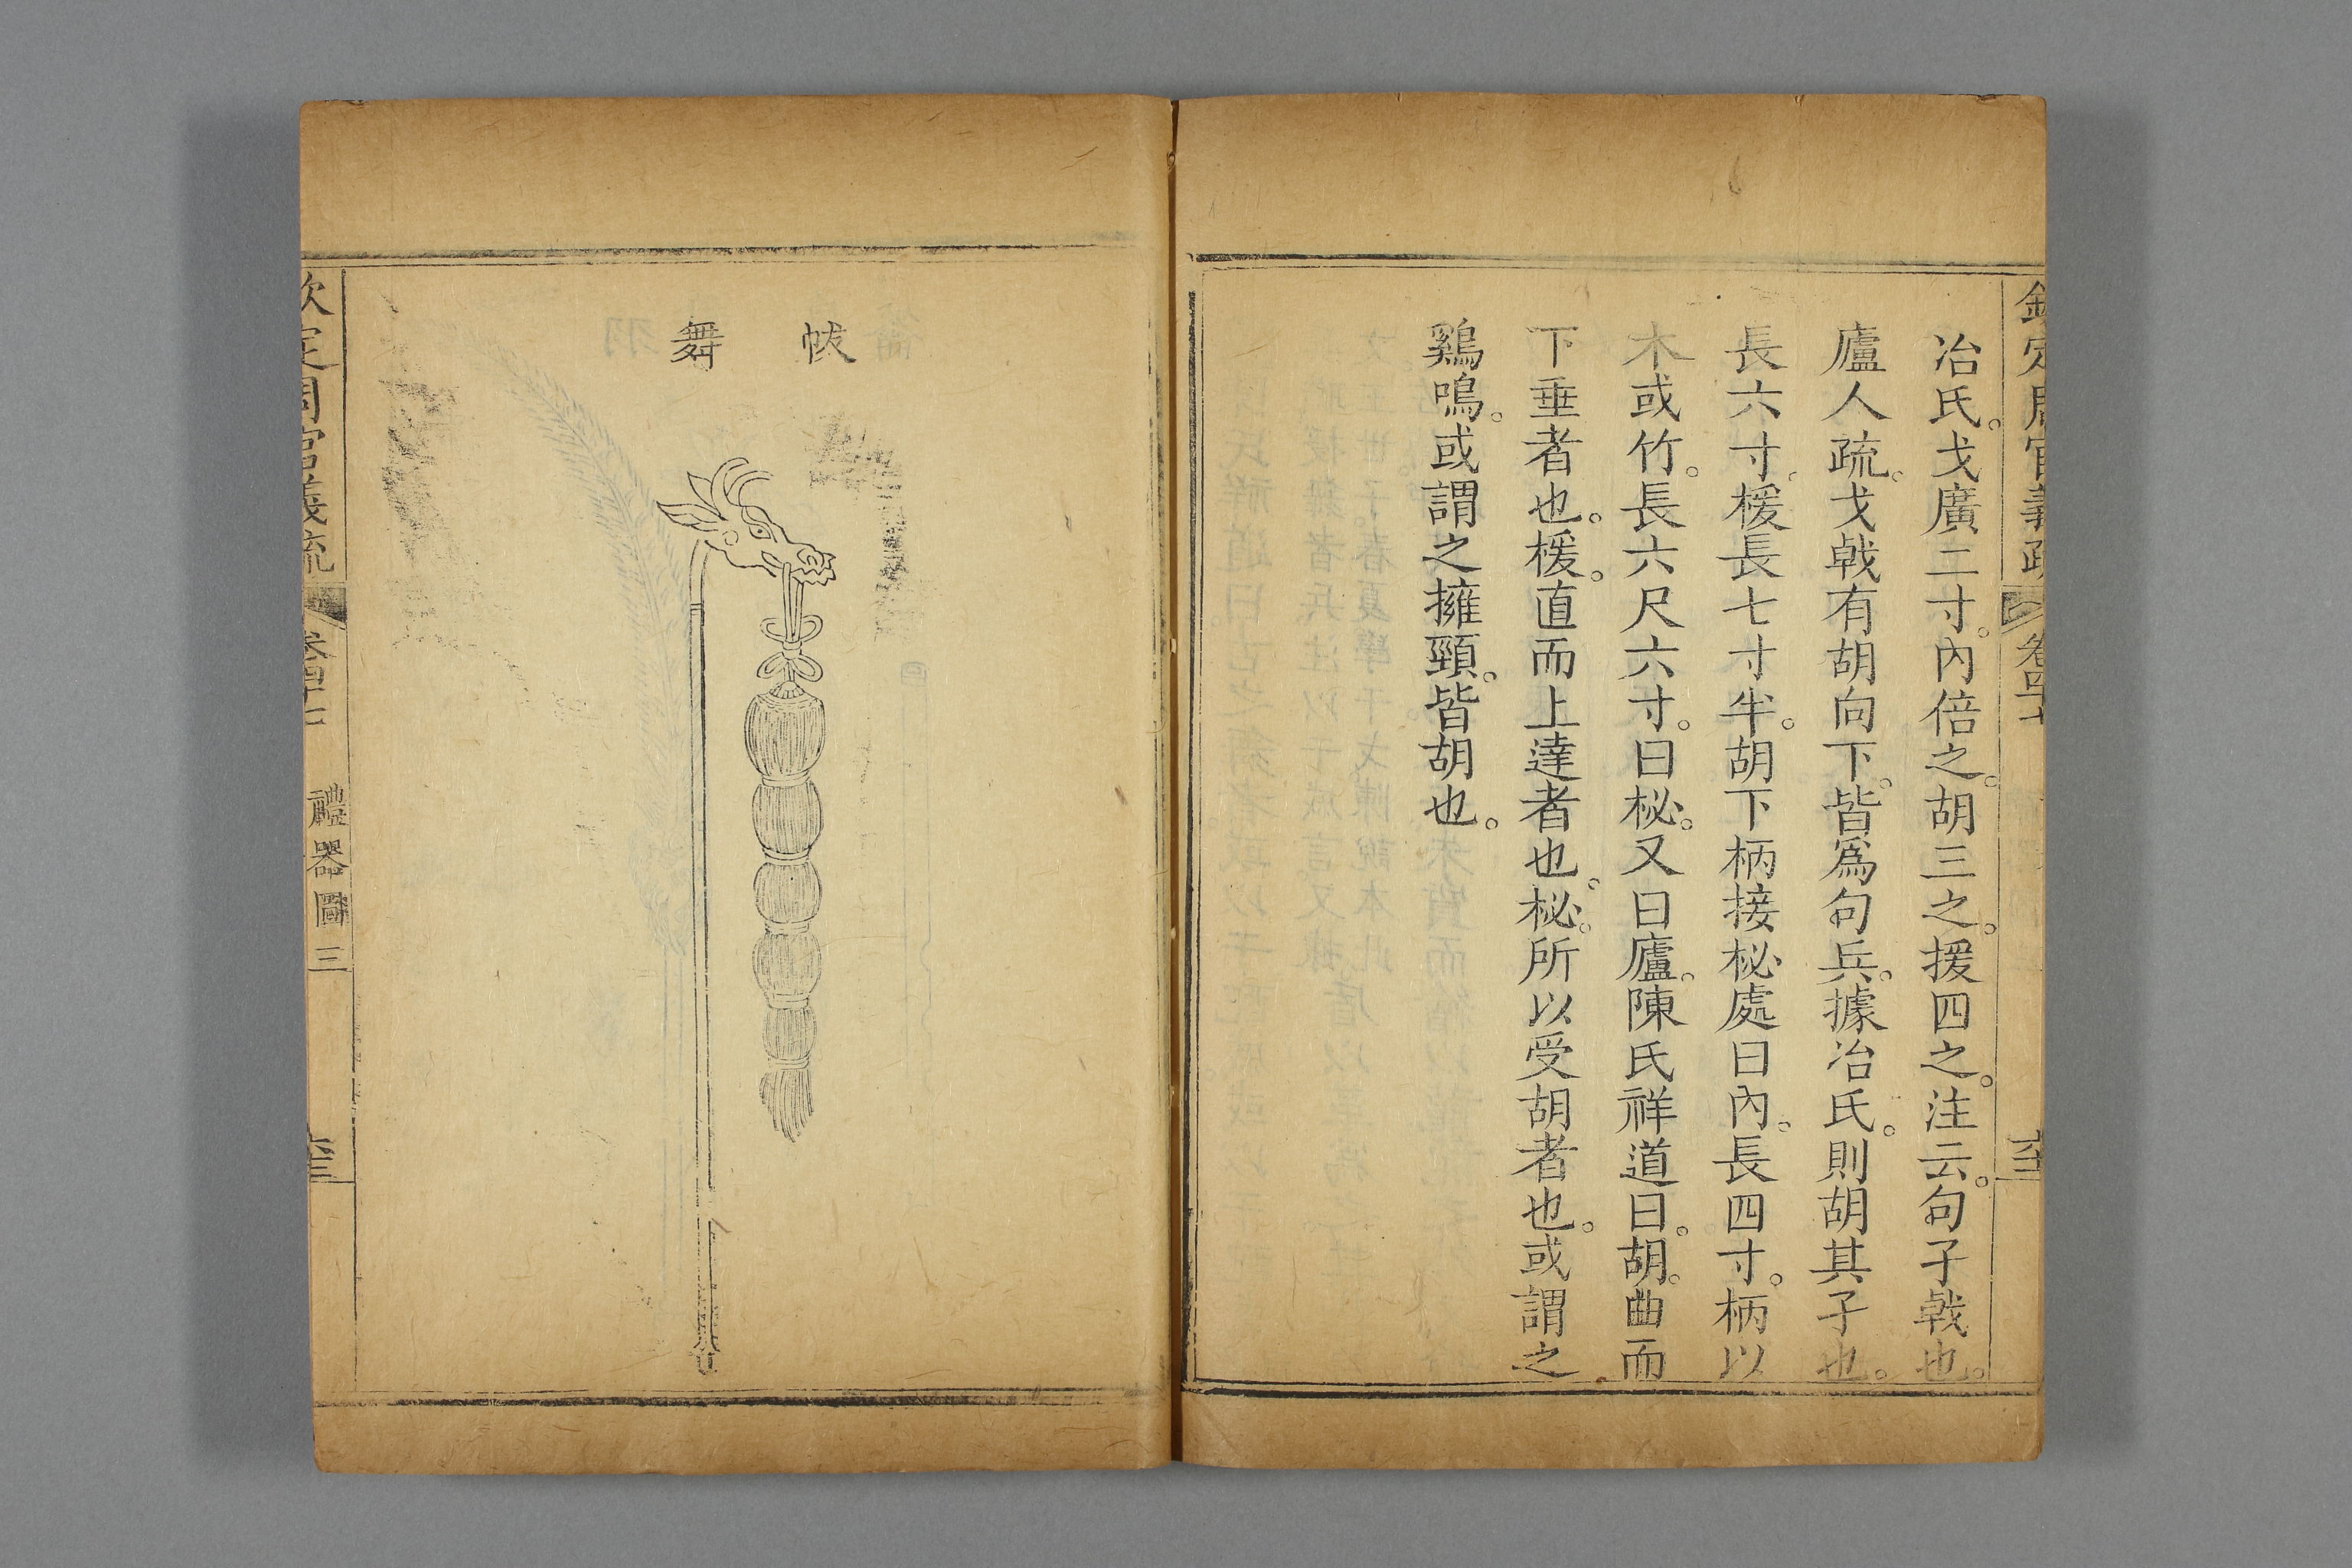 欽定周官義疏 卷四十七 禮器圖三
冶氏。戈廣二寸。內倍之。胡三之。援四之。注云。句子戟也。
廬人疏。戈戟有胡向下。皆爲句兵。據冶氏。則胡其子也。
長六寸。楥長七寸半。胡下柄接柲處曰內。長四寸。柄以
木或竹。長六尺六寸。曰柲。又曰廬。陳氏祥道曰。胡。曲而
下垂者也。楥。直而上達者也。柲。所以受胡者也。或謂之
鷄鳴。或謂之擁頸。皆胡也。
帗舞